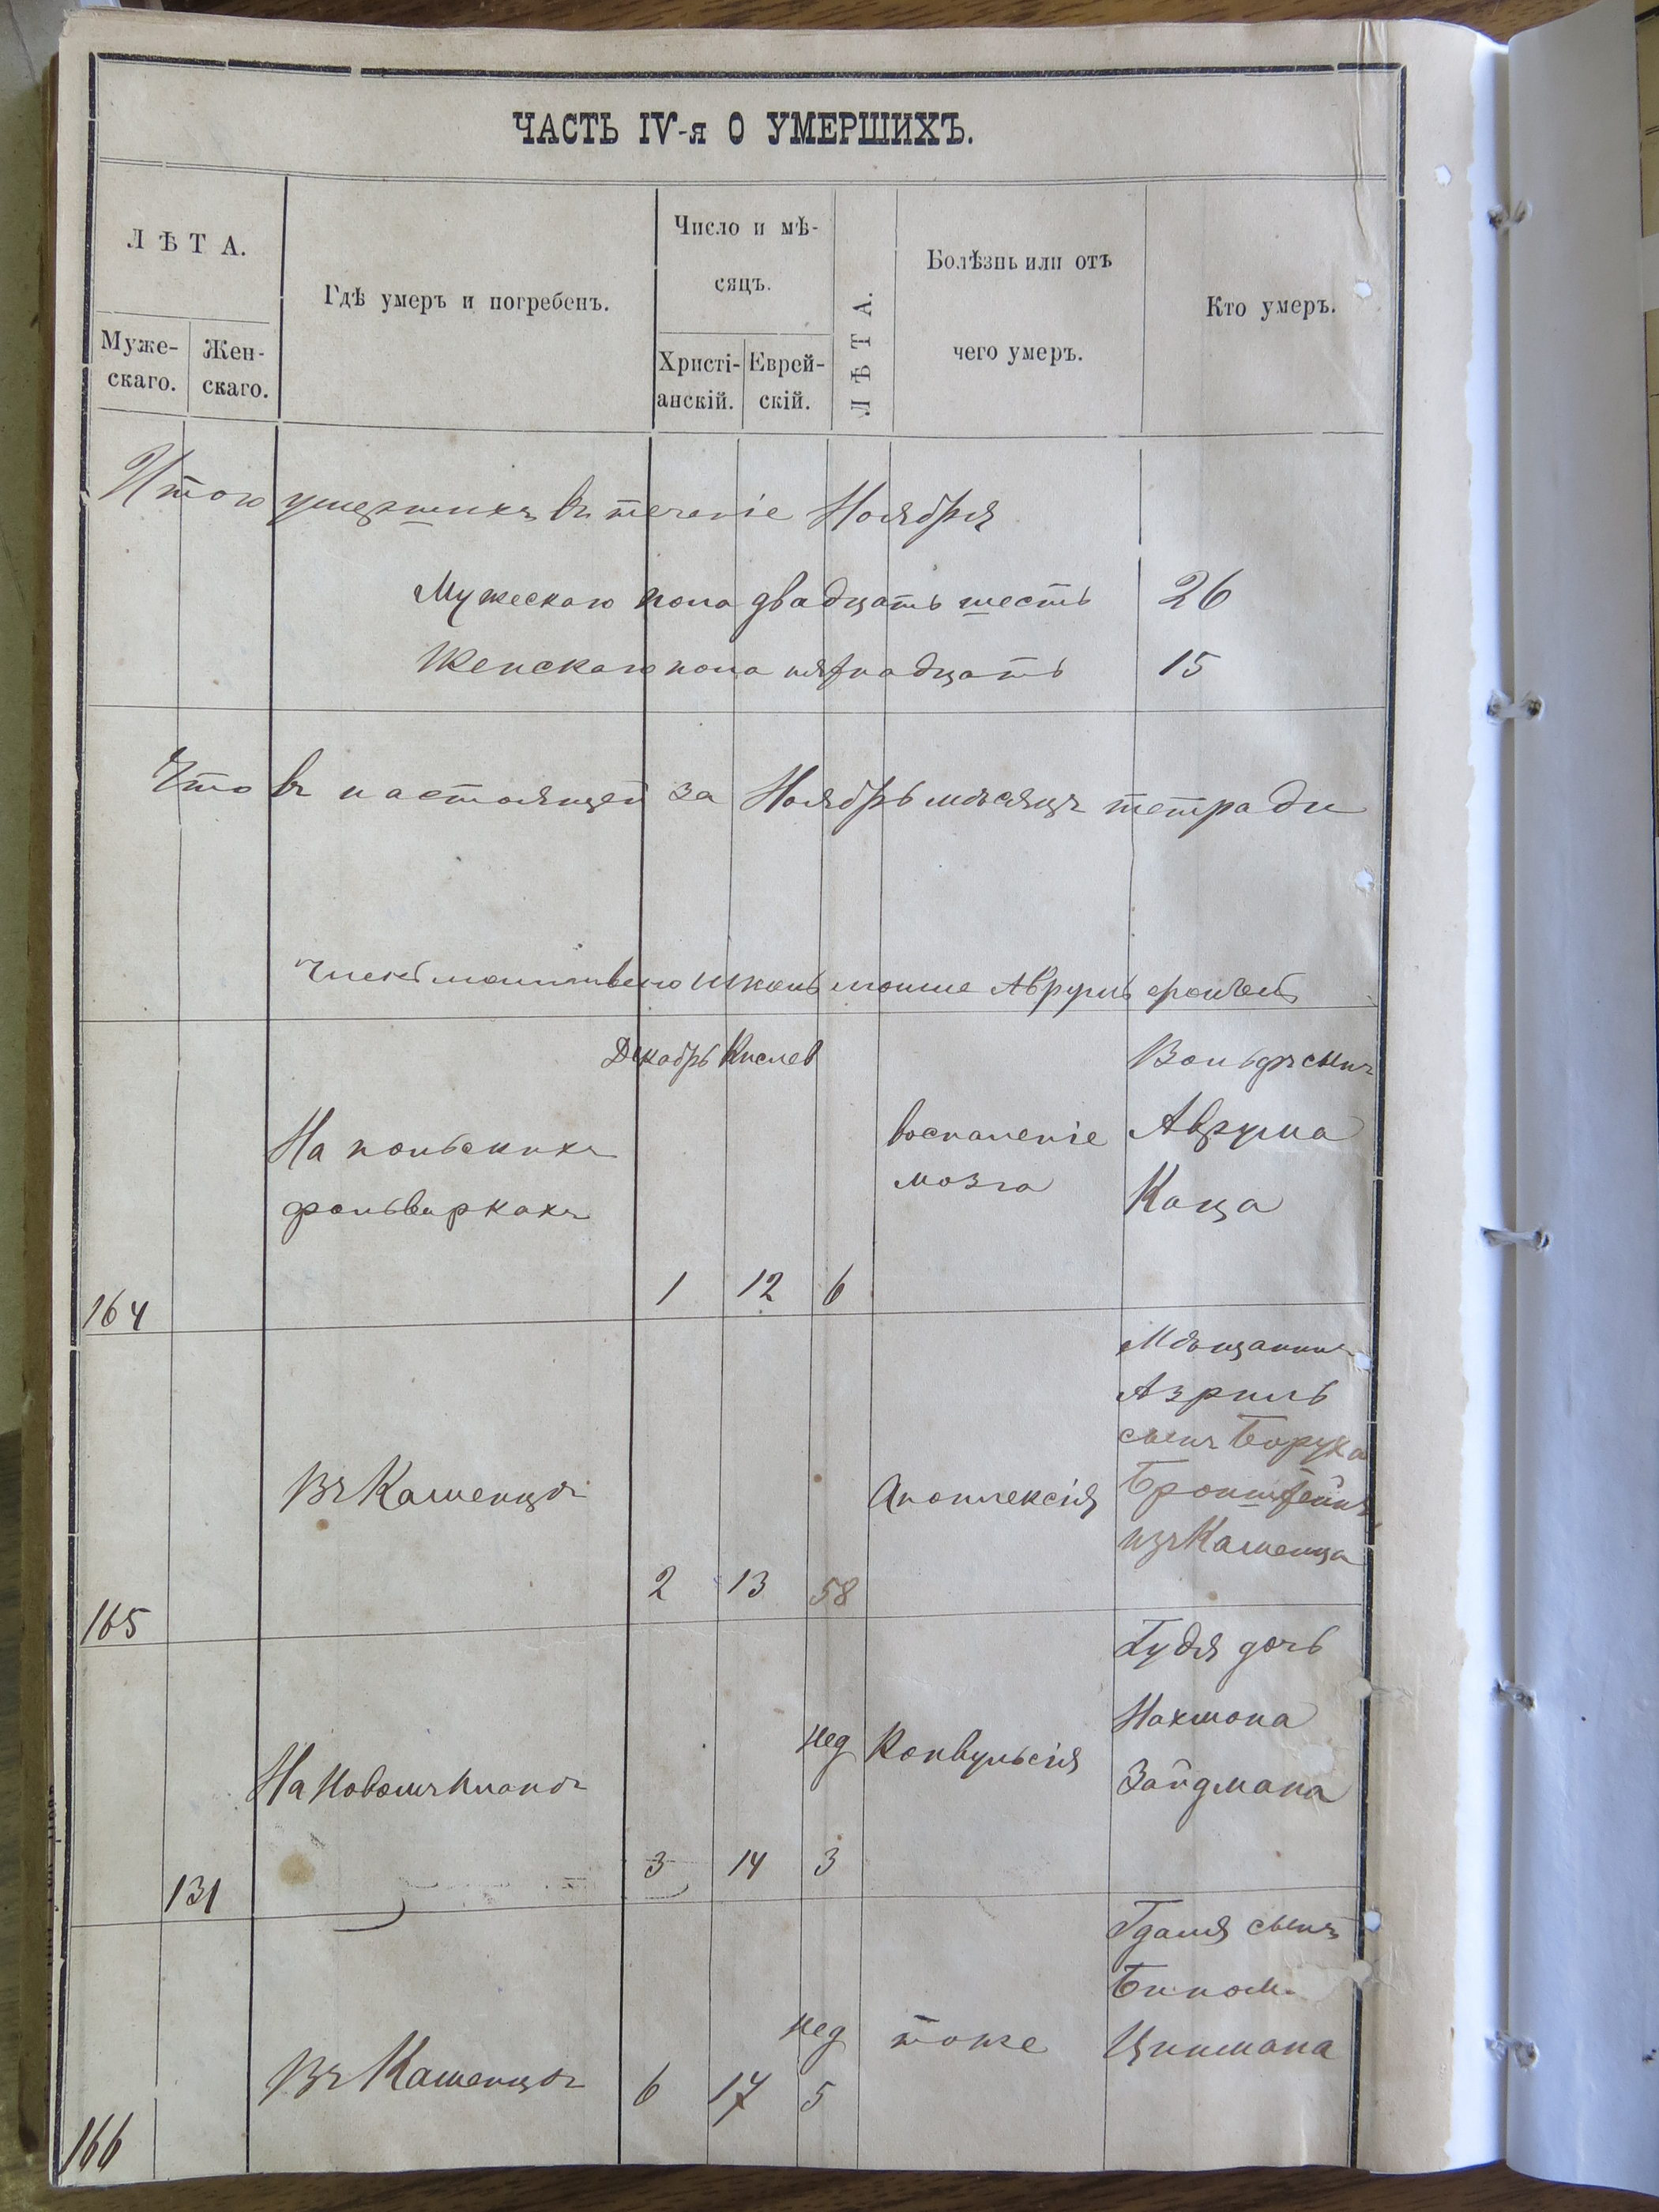 ЧАСТЬ IV-я О УМЕРШИХЪ.
ЛѢТА.
Муже-
скаго.
Жен-
скаго.
Гдѣ умеръ и погребенъ.
Число и мѣ-
сяцъ.
Христі-
анскій.
Еврей-
скій.
ЛѢТА.
Болѣзнь или отъ
чего умеръ.
Кто умеръ.
Итого умершихъ въ теченіе Ноября
Мужескаго пола двадцать шесть 26
Женскаго пола пятнадцать 15
Что въ настоящей за Ноябрь мѣсяцъ тетради
Декабрь Кислев
164
На польскихъ
фольваркахъ
1 12 6
воспаленіе
мозга
Вольфъ сынъ
Аврума
Каца
165
Въ Каменцѣ
2 13 58
Апоплексія
Мѣщанинъ
Азриль
сынъ Боруха
Бронштейнъ
изъ Каменца
131
На Новомъ планѣ
3 14
нед
3
Конвульсія
Гудя дочь
Нахмана
Зайдмана
166
Въ Каменцѣ
6 17
нед
5
тоже
Гдаля сынъ
Ципмана